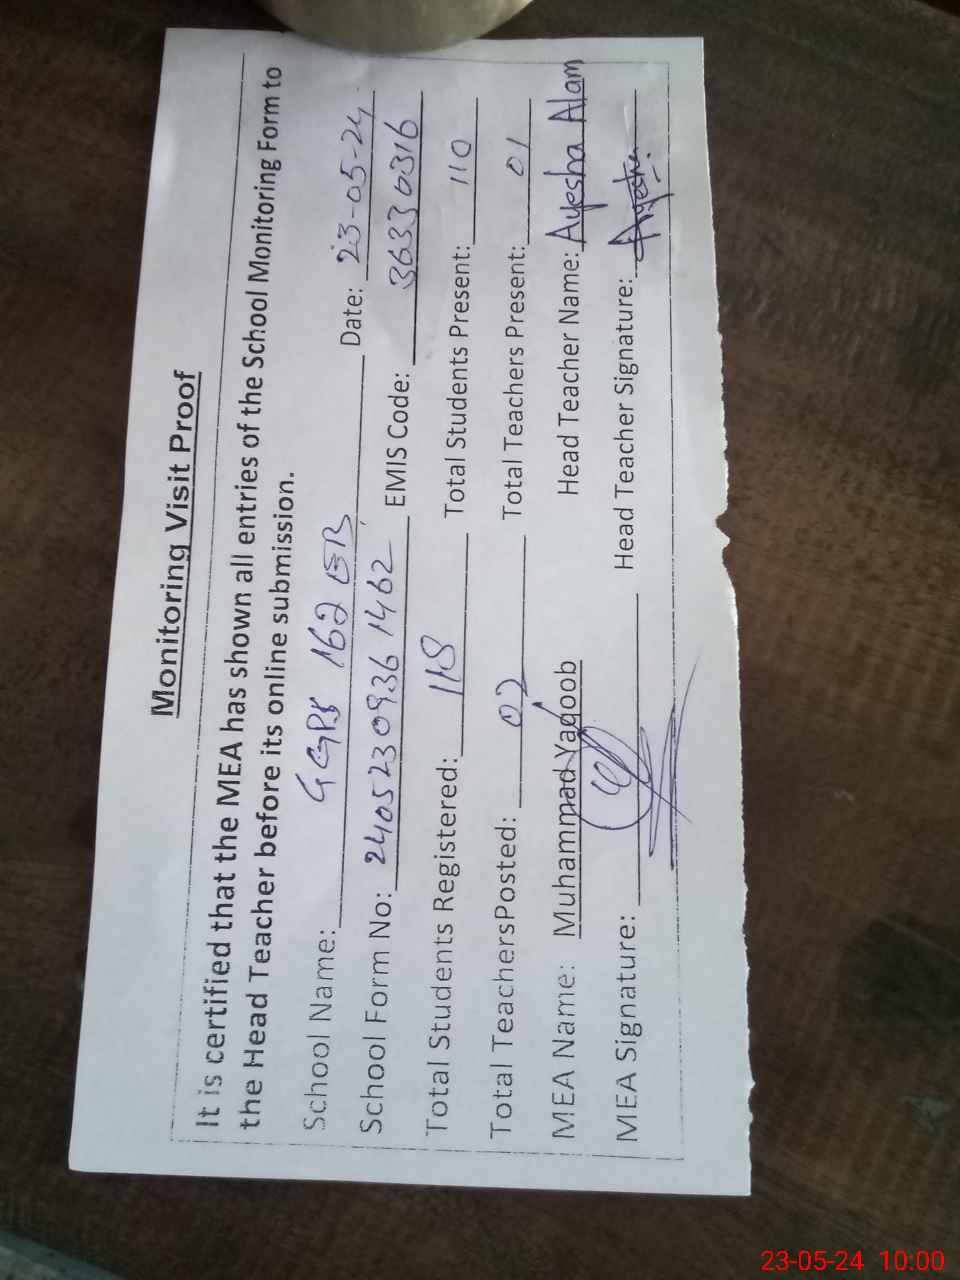 Monitoring Visit Proof
It is certified that the MEA has shown all entries of the School Monitoring Form to
the Head Teacher before its online submission.
School Name: GGPS 162 EB Date: 23-05-24
School Form No: 24052309361462 EMIS Code: 36330316
Total Students Registered: 118 Total Students Present: 110
Total TeachersPosted: 02 Total Teachers Present: 01
MEA Name: Muhammad Yaqoob Head Teacher Name: Ayesha Alam
MEA Signature: Head Teacher Signature: Ayesha
23-05-24 10:00